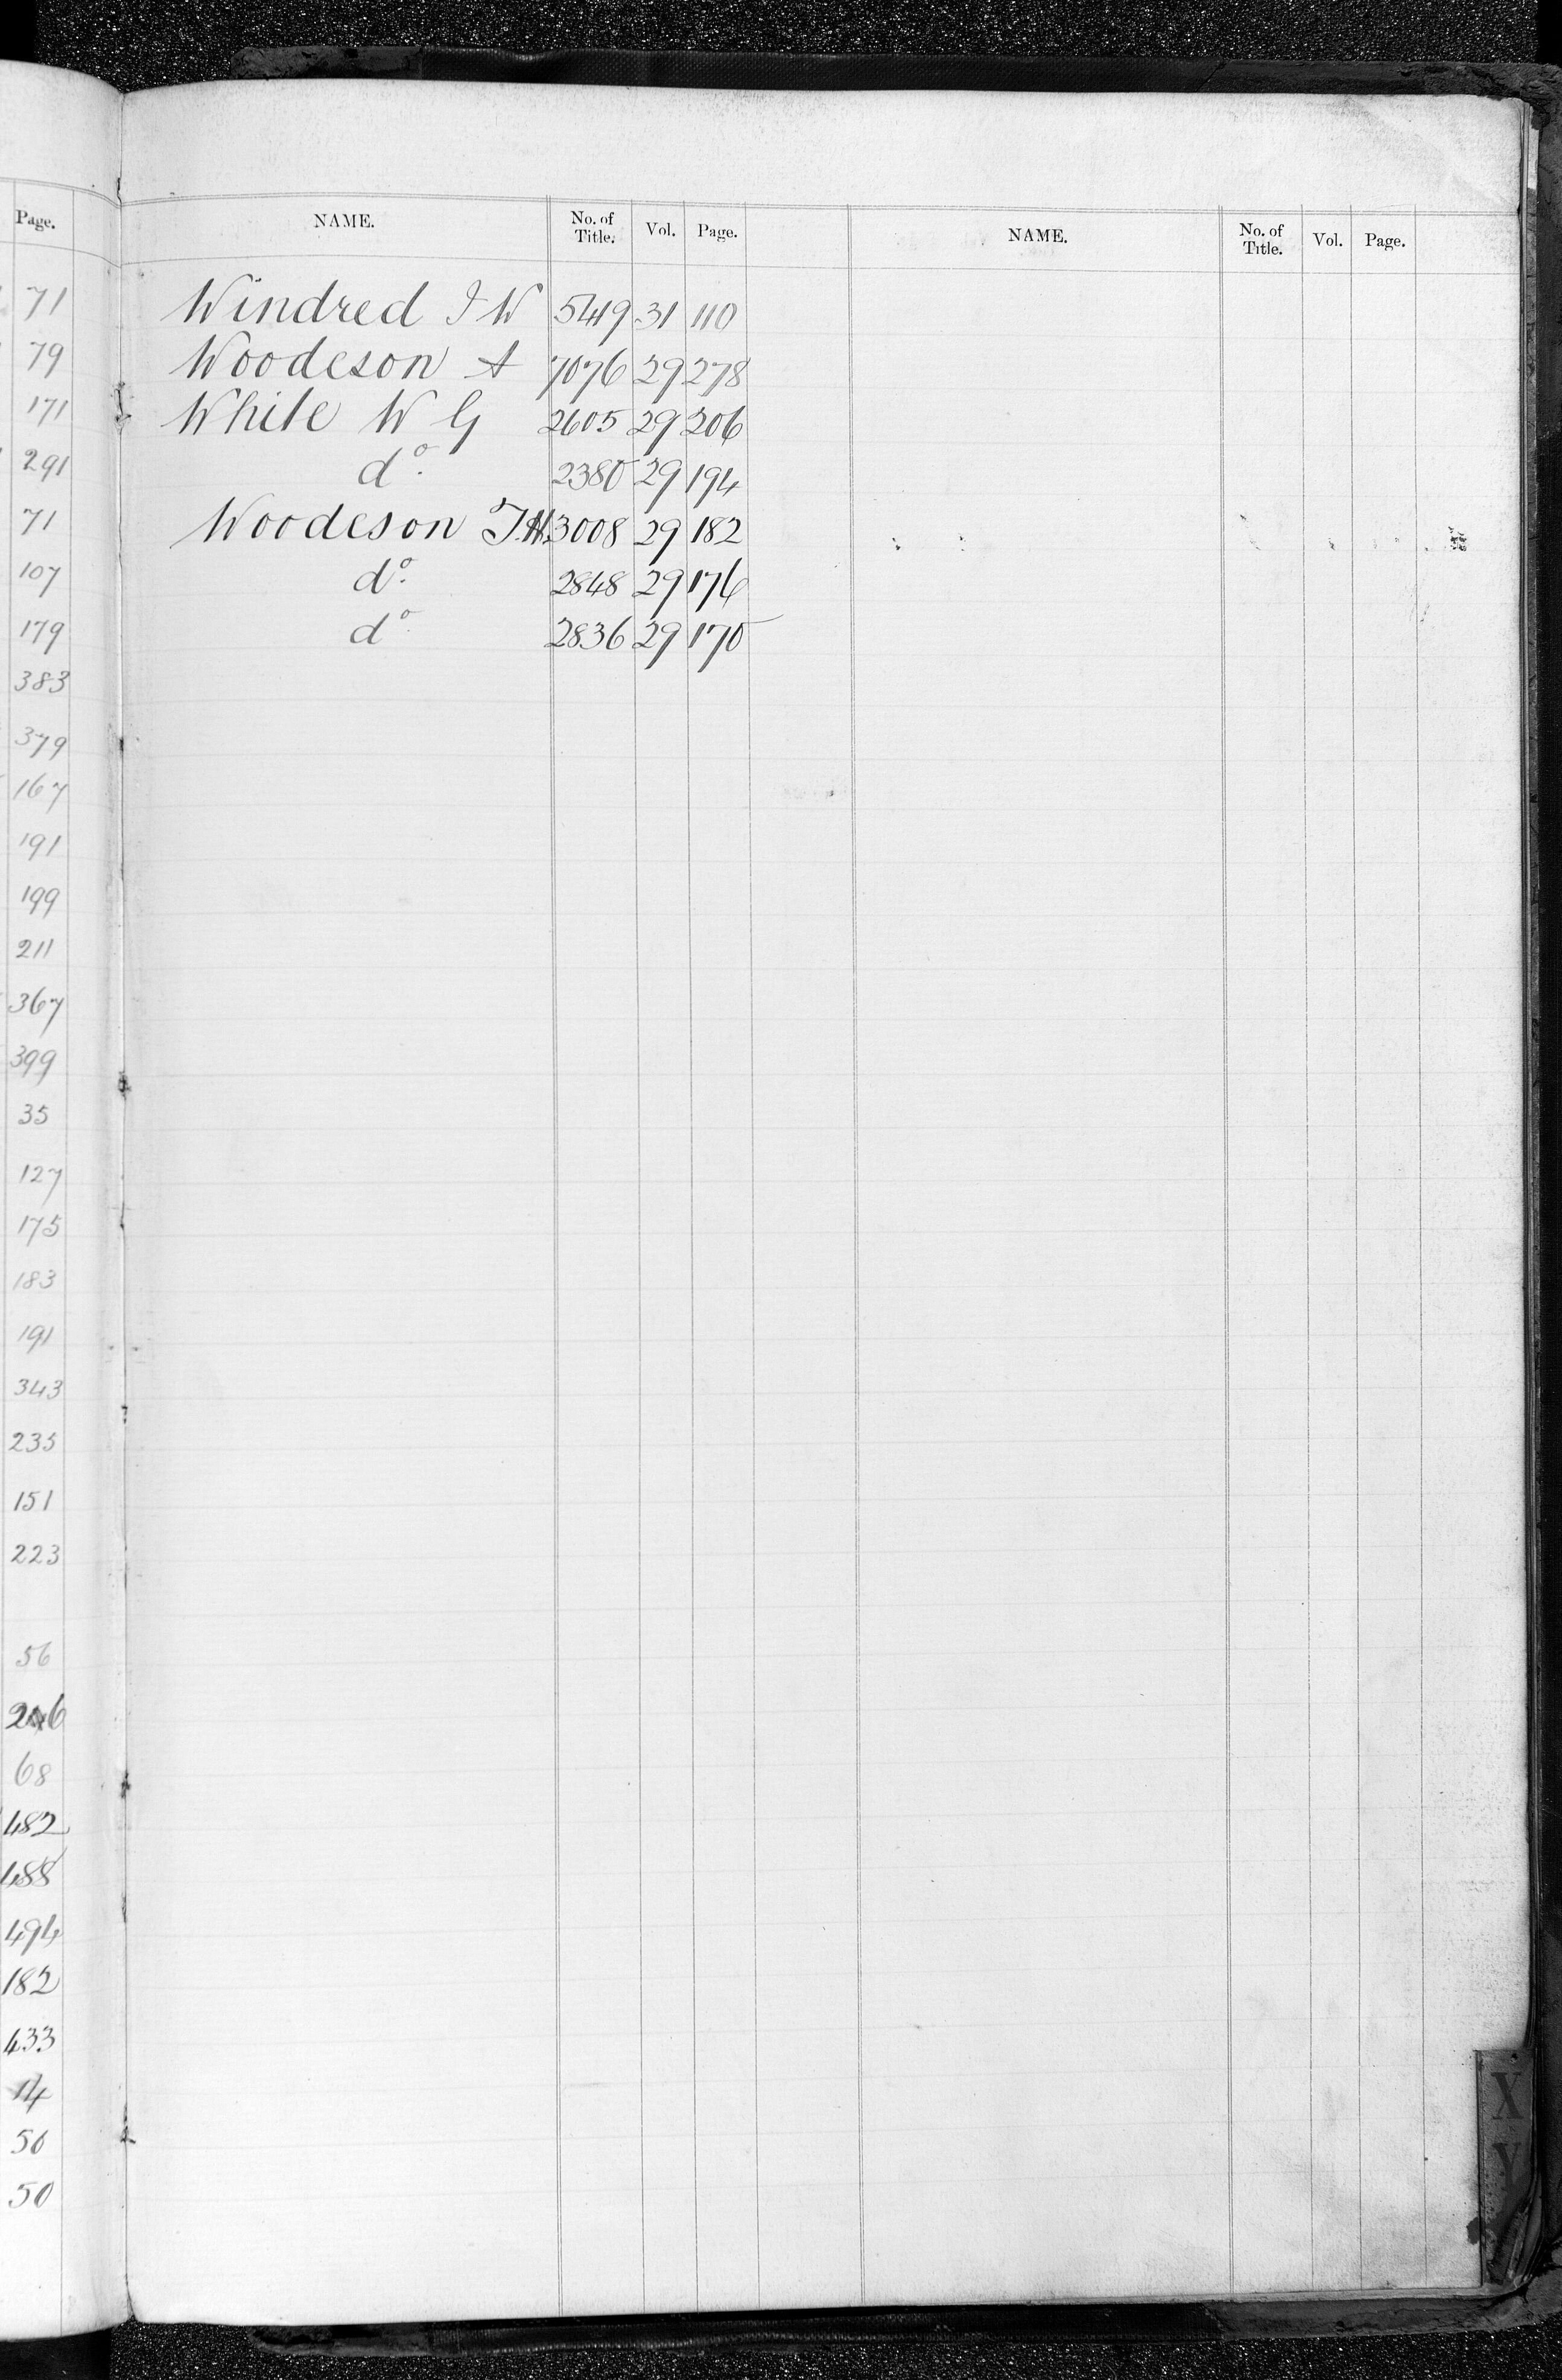 Page.
71
79
171
291
71
107
179
383
379
167
191
199
211
367
399
35
127
175
183
191
343
235
151
223
56
246
68
482
488
494
182
433
14
56
50
NAME. No. of Title. Vol. Page. NAME. No. of Title. Vol. Page.
Windred J W 5419 31 110
Woodeson A 7076 29 278
White W G 2605 29 206
do. 2380 29 194
Woodeson T.H. 3008 29 182
do. 2848 29 176
do. 2836 29 170
X
Y